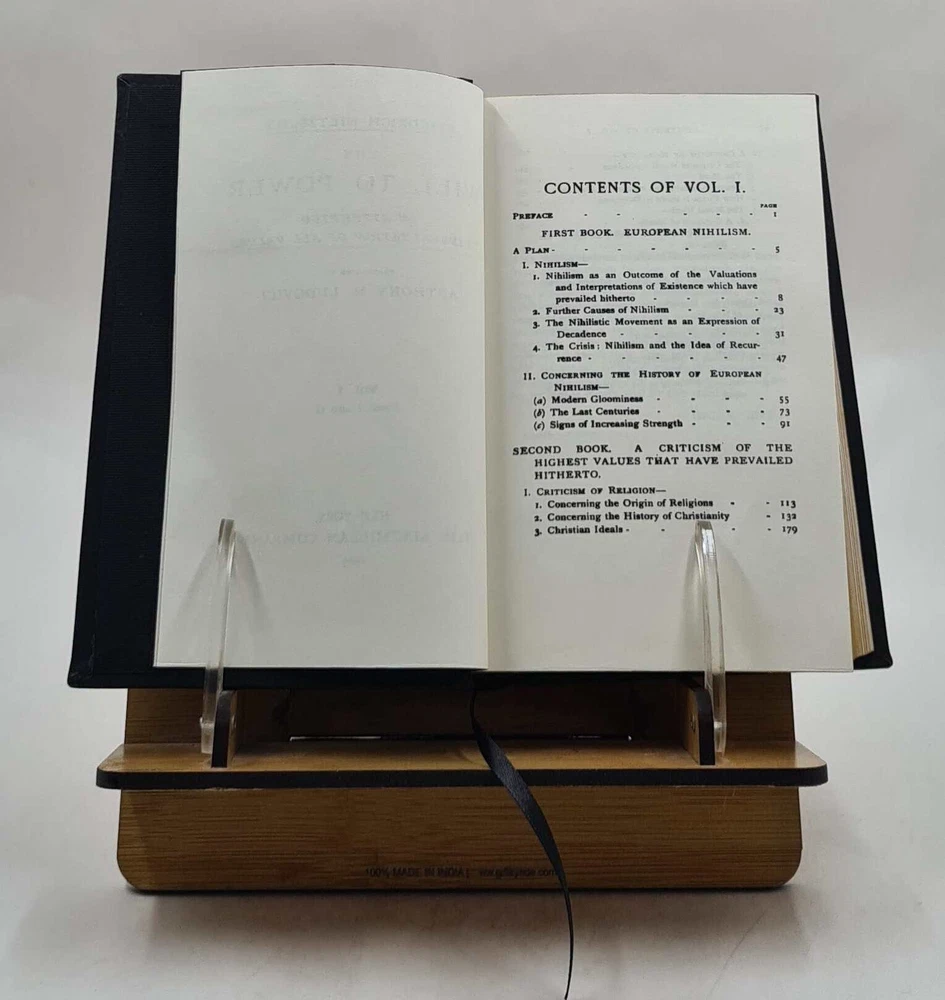 CONTENTS OF VOL. I.
PAGE
PREFACE - - - - - - 1
FIRST BOOK. EUROPEAN NIHILISM.
A PLAN - - - - - - - 5
I. NIHILISM—
1. Nihilism as an Outcome of the Valuations
and Interpretations of Existence which have
prevailed hitherto - - - - 8
2. Further Causes of Nihilism - - - 23
3. The Nihilistic Movement as an Expression of
Decadence - - - - - 31
4. The Crisis: Nihilism and the Idea of Recur-
rence - - - - - - 47
II. CONCERNING THE HISTORY OF EUROPEAN
NIHILISM—
(a) Modern Gloominess - - - - 55
(b) The Last Centuries - - - - 73
(c) Signs of Increasing Strength - - - 91
SECOND BOOK. A CRITICISM OF THE
HIGHEST VALUES THAT HAVE PREVAILED
HITHERTO.
I. CRITICISM OF RELIGION—
1. Concerning the Origin of Religions - - 113
2. Concerning the History of Christianity - 132
3. Christian Ideals - - - - - 179
100% MADE IN INDIA |